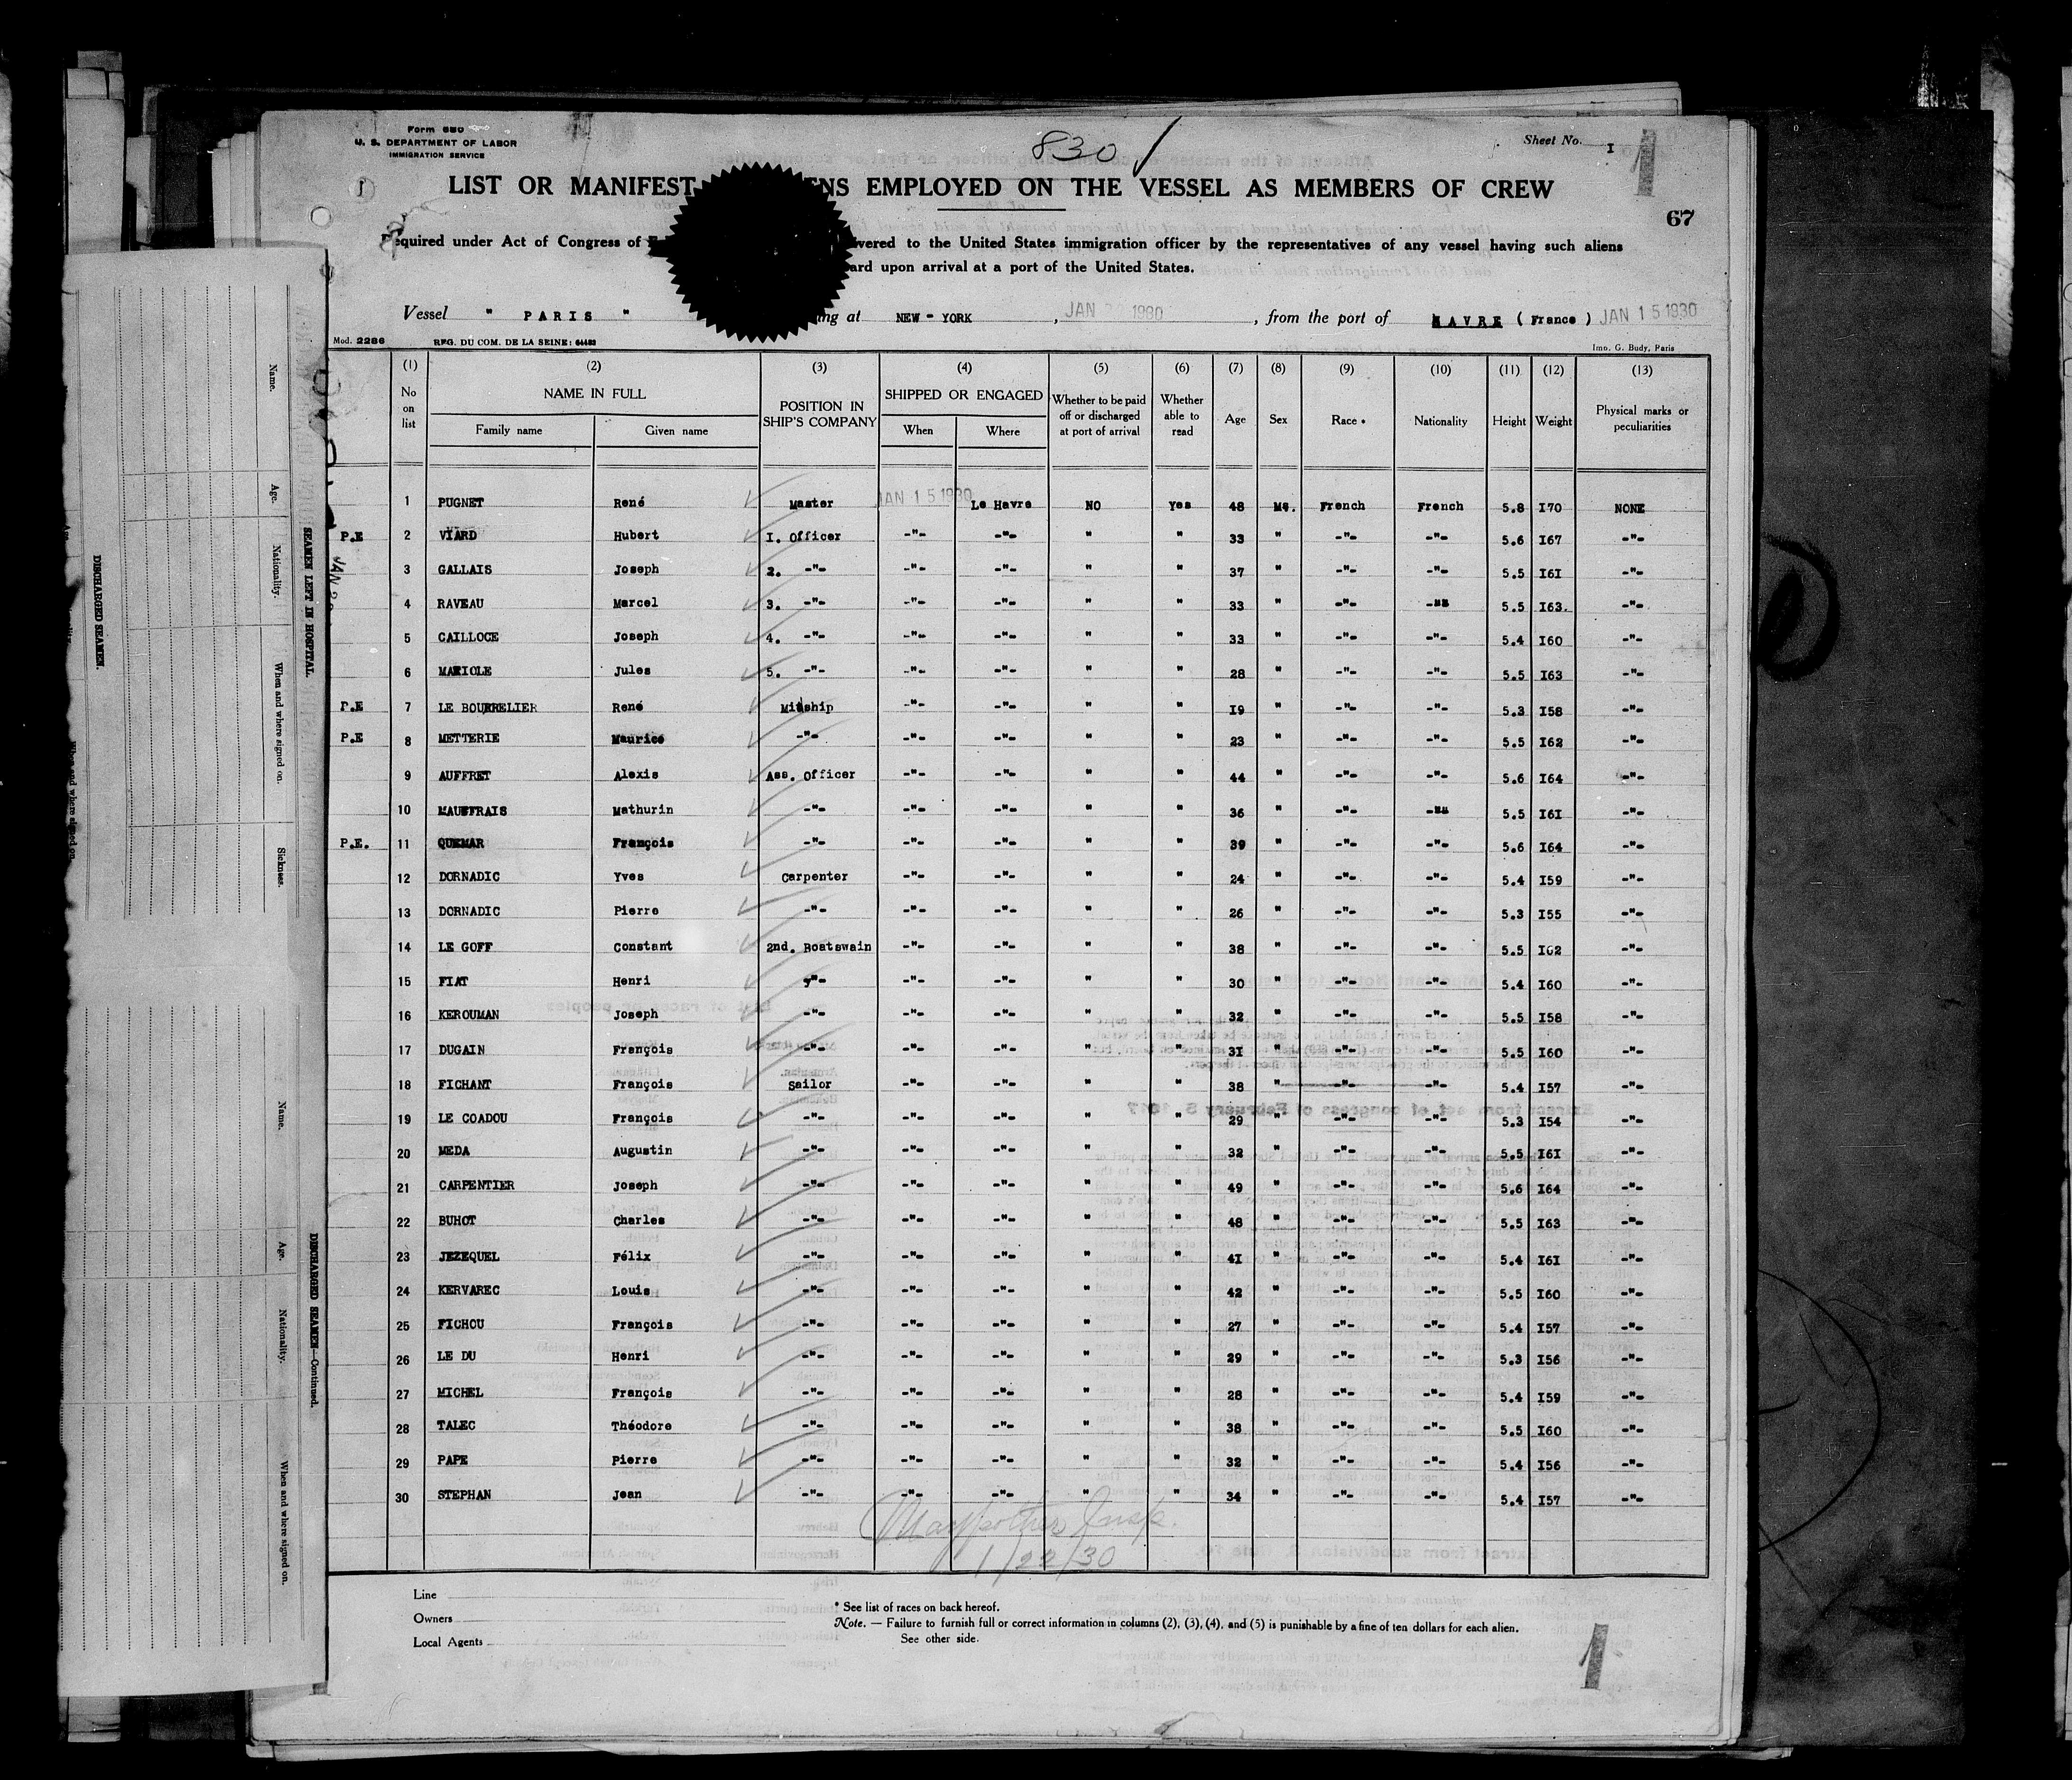 Form 680
U. S. DEPARTMENT OF LABOR
IMMIGRATION SERVICE
830
Sheet No. I
1
LIST OR MANIFEST ENS EMPLOYED ON THE VESSEL AS MEMBERS OF CREW
67
Required under Act of Congress of vered to the United States immigration officer by the representatives of any vessel having such aliens
ard upon arrival at a port of the United States.
Vessel " PARIS " ng at NEW-YORK , JAN 1930 , from the port of HAVRE ( France ) JAN 15 1930
Mod. 2286 REG. DU COM. DE LA SEINE: 64483 Imp. G. Budy, Paris
(1) (2) (3) (4) (5) (6) (7) (8) (9) (10) (11) (12) (13)
No on list NAME IN FULL POSITION IN SHIP'S COMPANY SHIPPED OR ENGAGED Whether to be paid off or discharged at port of arrival Whether able to read Age Sex Race * Nationality Height Weight Physical marks or peculiarities
Family name Given name When Where
1 PUGNET René Master JAN 15 1930 Le Havre NO Yes 48 Me. French French 5.8 I70 NONE
P.E 2 VIARD Hubert I. Officer -"- -"- " " 33 " -"- -"- 5.6 I67 -"-
3 GALLAIS Joseph 2. -"- -"- -"- " " 37 " -"- -"- 5.5 I6I -"-
4 RAVEAU Marcel 3. -"- -"- -"- " " 33 " -"- -"- 5.5 I63. -"-
5 CAILLOCE Joseph 4. -"- -"- -"- " " 33 " -"- -"- 5.4 I60 -"-
6 MARIOLE Jules 5. -"- -"- -"- " " 28 " -"- -"- 5.5 I63 -"-
P.E 7 LE BOURRELIER René Midship -"- -"- " " I9 " -"- -"- 5.3 I58 -"-
P.E 8 METTERIE Maurice -"- -"- -"- " " 23 " -"- -"- 5.5 I62 -"-
9 AUFFRET Alexis Ass. Officer -"- -"- " " 44 " -"- -"- 5.6 I64 -"-
10 MAUFFRAIS Mathurin -"- -"- -"- " " 36 " -"- -"- 5.5 I6I -"-
P.E. 11 QUEMAR François -"- -"- -"- " " 39 " -"- -"- 5.6 I64 -"-
12 DORNADIC Yves Carpenter -"- -"- " " 24 " -"- -"- 5.4 I59 -"-
13 DORNADIC Pierre -"- -"- -"- " " 26 " -"- -"- 5.3 I55 -"-
14 LE GOFF Constant 2nd. Boatswain -"- -"- " " 38 " -"- -"- 5.5 I62 -"-
15 FIAT Henri -"- -"- -"- " " 30 " -"- -"- 5.4 I60 -"-
16 KEROUMAN Joseph -"- -"- -"- " " 32 " -"- -"- 5.5 I58 -"-
17 DUGAIN François -"- -"- -"- " " 3I " -"- -"- 5.5 I60 -"-
18 FICHANT François Sailor -"- -"- " " 38 " -"- -"- 5.4 I57 -"-
19 LE COADOU François -"- -"- -"- " " 29 " -"- -"- 5.3 I54 -"-
20 MEDA Augustin -"- -"- -"- " " 32 " -"- -"- 5.5 I6I -"-
21 CARPENTIER Joseph -"- -"- -"- " " 49 " -"- -"- 5.6 I64 -"-
22 BUHOT Charles -"- -"- -"- " " 48 " -"- -"- 5.5 I63 -"-
23 JEZEQUEL Félix -"- -"- -"- " " 4I " -"- -"- 5.4 I6I -"-
24 KERVAREC Louis -"- -"- -"- " " 42 " -"- -"- 5.5 I60 -"-
25 FICHOU François -"- -"- -"- " " 27 " -"- -"- 5.4 I57 -"-
26 LE DU Henri -"- -"- -"- " " 29 " -"- -"- 5.3 I56 -"-
27 MICHEL François -"- -"- -"- " " 28 " -"- -"- 5.4 I59 -"-
28 TALEC Théodore -"- -"- -"- " " 38 " -"- -"- 5.5 I60 -"-
29 PAPE Pierre -"- -"- -"- " " 32 " -"- -"- 5.4 I56 -"-
30 STEPHAN Jean -"- -"- -"- " " 34 " -"- -"- 5.4 I57 -"-
Insp.
1/22/30
Line
Owners
Local Agents
* See list of races on back hereof.
Note. — Failure to furnish full or correct information in columns (2), (3), (4), and (5) is punishable by a fine of ten dollars for each alien.
See other side.
1
SEAMEN LEFT IN HOSPITAL.
Name. Age. Nationality. When and where signed on. Sickness.
DISCHARGED SEAMEN.
DISCHARGED SEAMEN—Continued.
Name. Age. Nationality. When and where signed on.